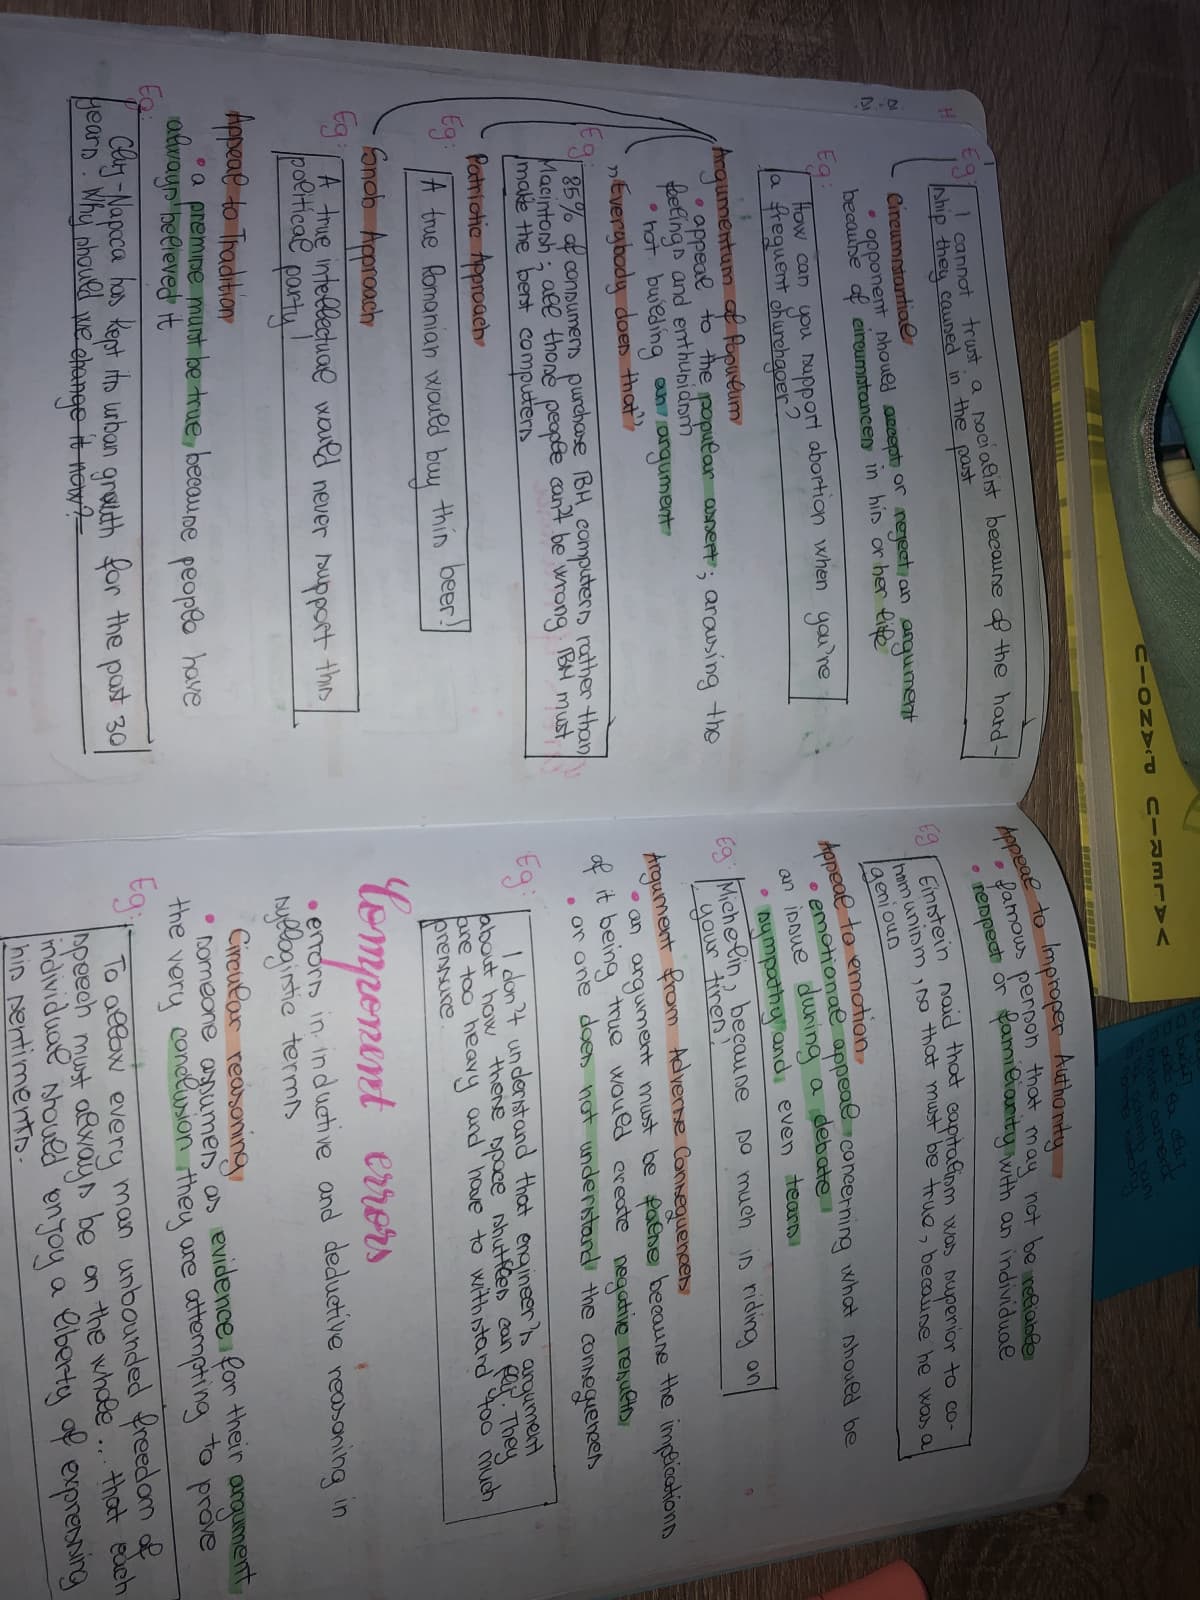 Eg: I cannot trust a socialist because of the hard-
ship they caused in the past
Circumstantial
• opponent should accept or reject an argument
because of circumstances in his or her life
Eg: How can you support abortion when you're
a frequent churchgoer?
Argumentum ad Populum
• appeal to the popular assert; arousing the
feelings and enthusiasm
• not building an argument
„Everybody does that"
Eg: 85% of consumers purchase IBM computers rather than
Macintosh; all those people can't be wrong. IBM must
make the best computers
Patriotic Approach
Eg: A true Romanian would buy this beer!
Snob Approach
Eg: A true intellectual would never support this
political party!
Appeal to Tradition
• a premise must be true, because people have
always believed it
Eg: Cluj-Napoca has kept its urban growth for the past 30
years. Why should we change it now?
Appeal to Improper Authority
• famous person that may not be reliable
• respect or familiarity with an individual
Eg Einistrein said that capitalism was superior to co-
mmunism, so that must be true, because he was a
genious
Appeal to emotion
• emotional appeal concerning what should be
an issue during a debate
• sympathy and even tears
Eg: Michelin, because so much is riding on
your tires!
Argument from Adverse Consequences
• an argument must be false because the implications
of it being true would create negative results
• or one does not understand the consequences
Eg: I don't understand that engineer's argument
about how these space shuttles can fly. They
are too heavy and have to withstand too much
pressure.
Component errors
• errors in inductive and deductive reasoning in
syllogistic terms
Circular reasoning
• someone assumes as evidence for their argument
the very conclusion they are attempting to prove
Eg: To allow every man unbounded freedom of
speech must always be on the whole... that each
individual should enjoy a liberty of expressing
his sentiments.